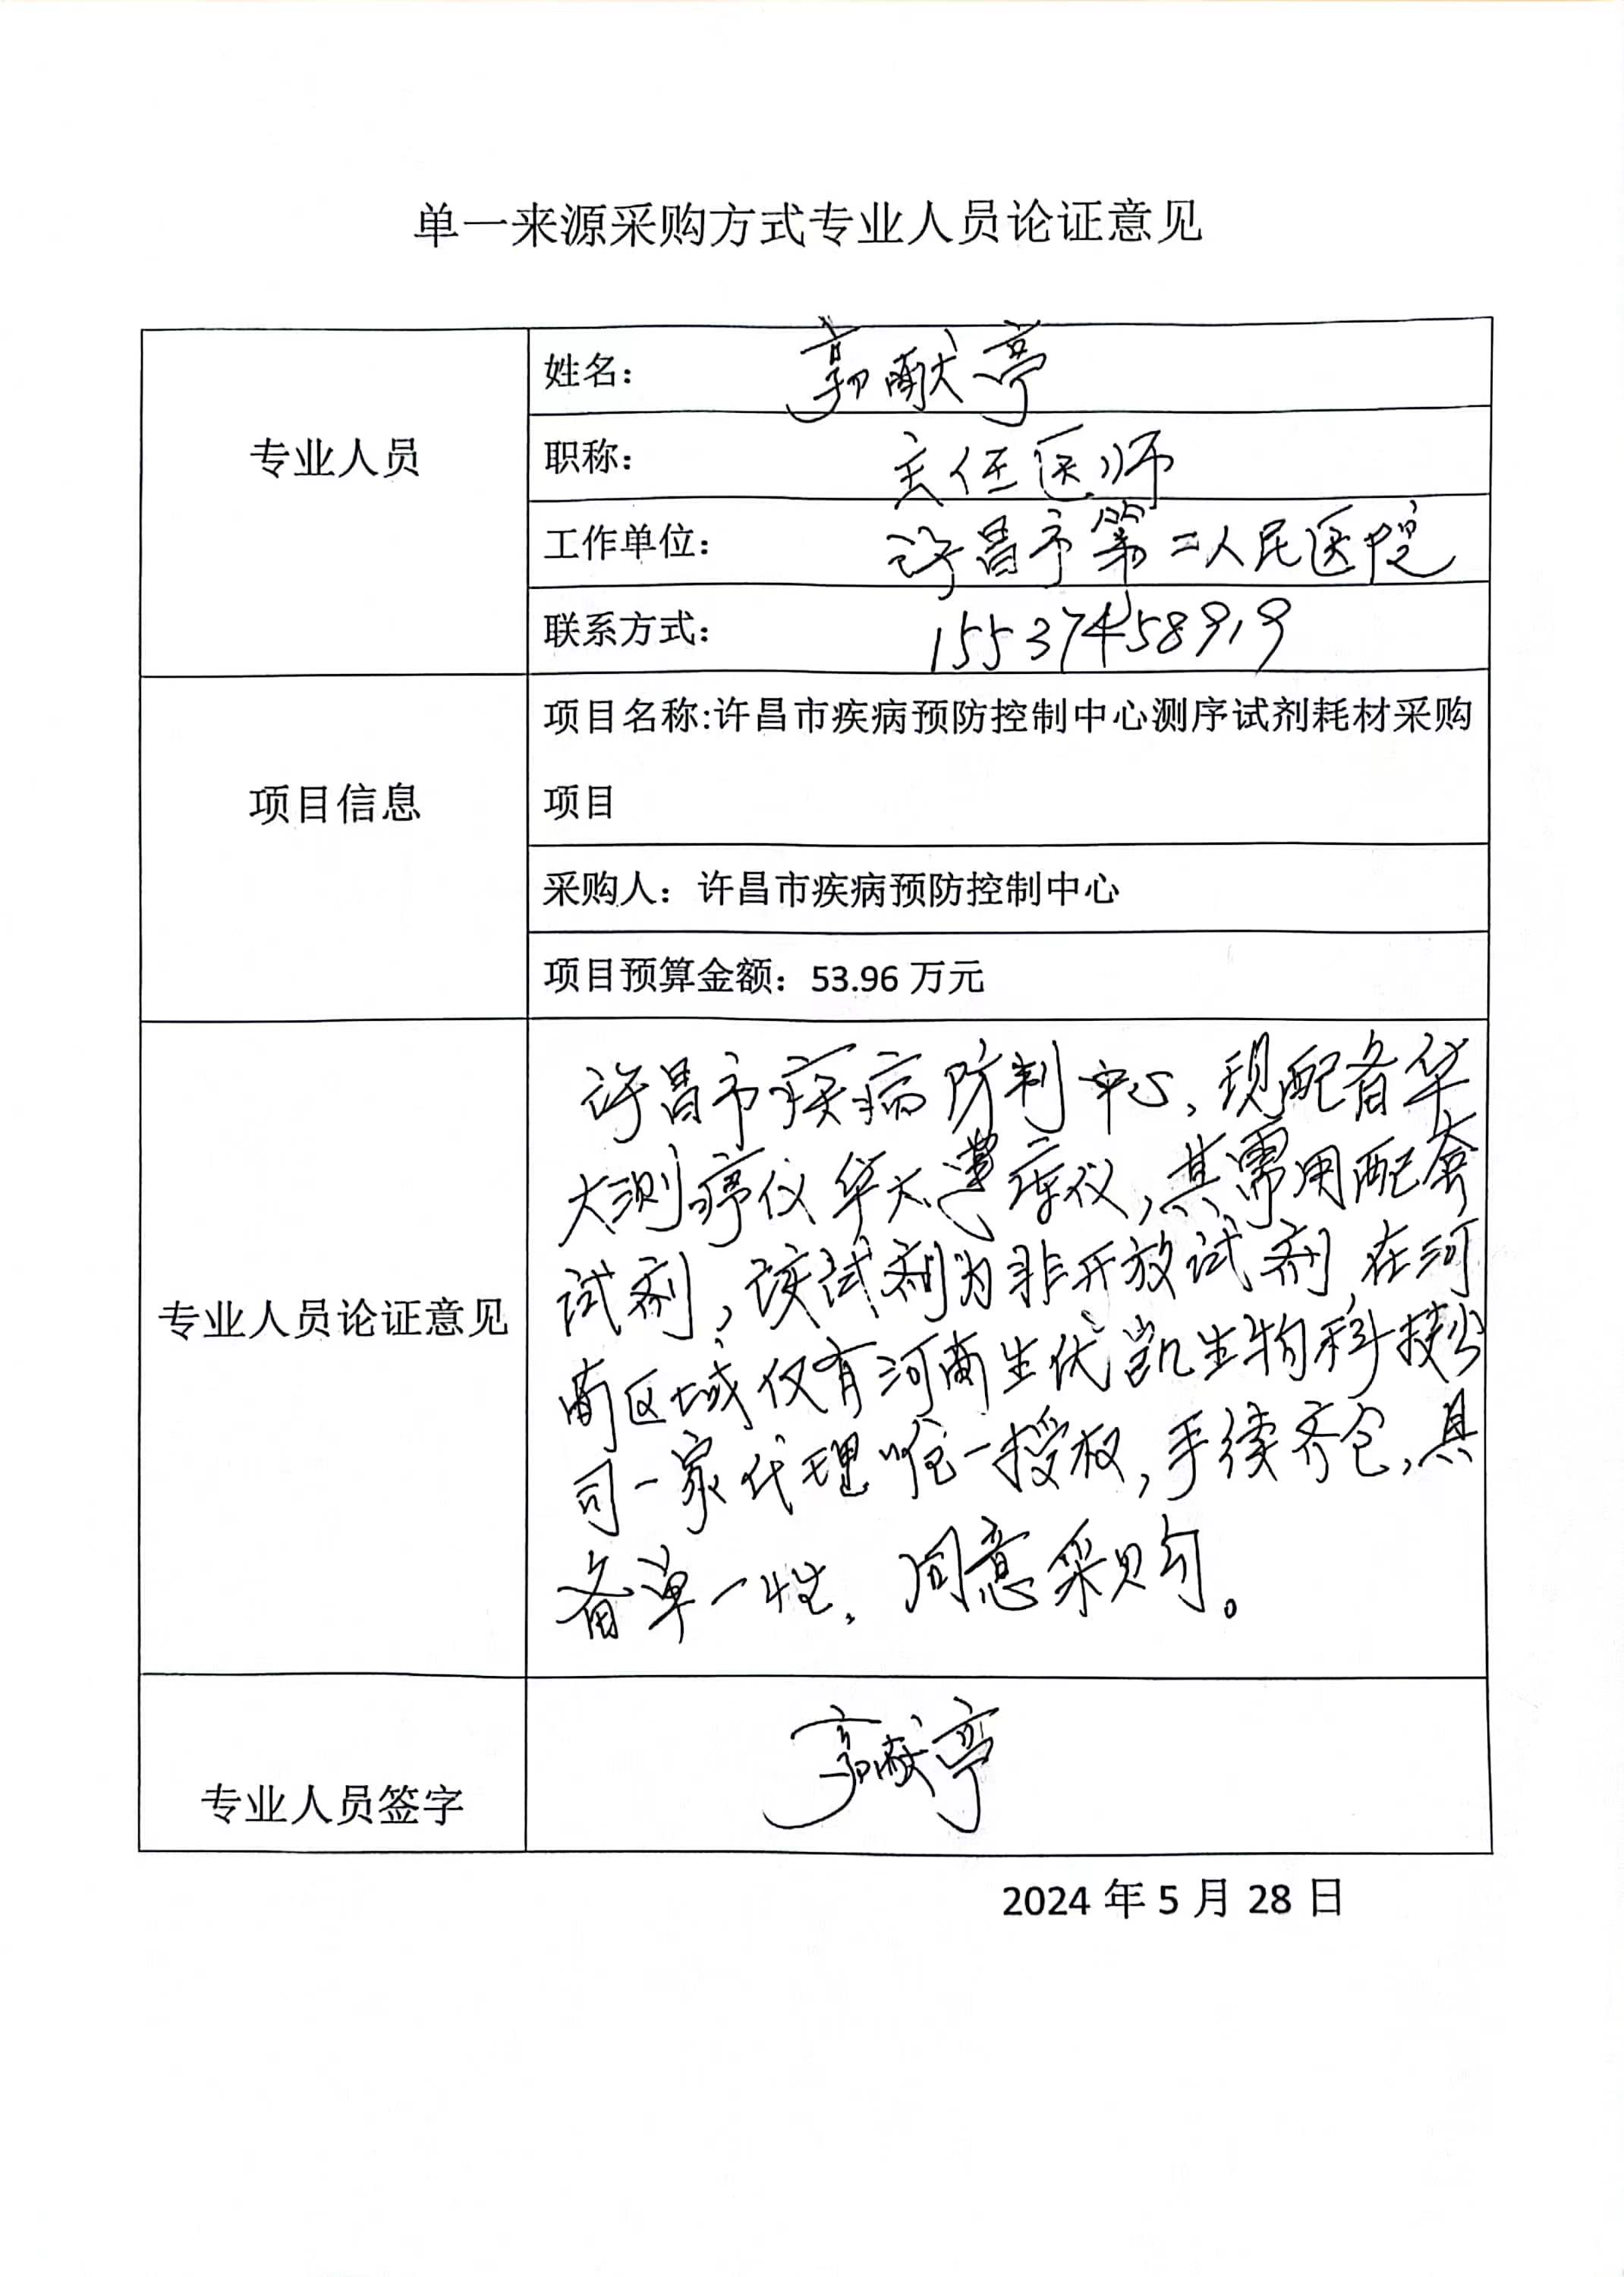 单一来源采购方式专业人员论证意见
专业人员
姓名：郭献亭
职称：主任医师
工作单位：许昌市第二人民医院
联系方式：15537458919
项目信息
项目名称:许昌市疾病预防控制中心测序试剂耗材采购
项目
采购人：许昌市疾病预防控制中心
项目预算金额：53.96 万元
专业人员论证意见
许昌市疾病防制中心，现配备华
大测序仪华大建库仪，其需用配套
试剂，该试剂为非开放试剂，在河
南区域仅有河南生优凯生物科技公
司一家代理唯一授权，手续齐全，具
备单一性，同意采购。
专业人员签字
郭献亭
2024 年 5 月 28 日